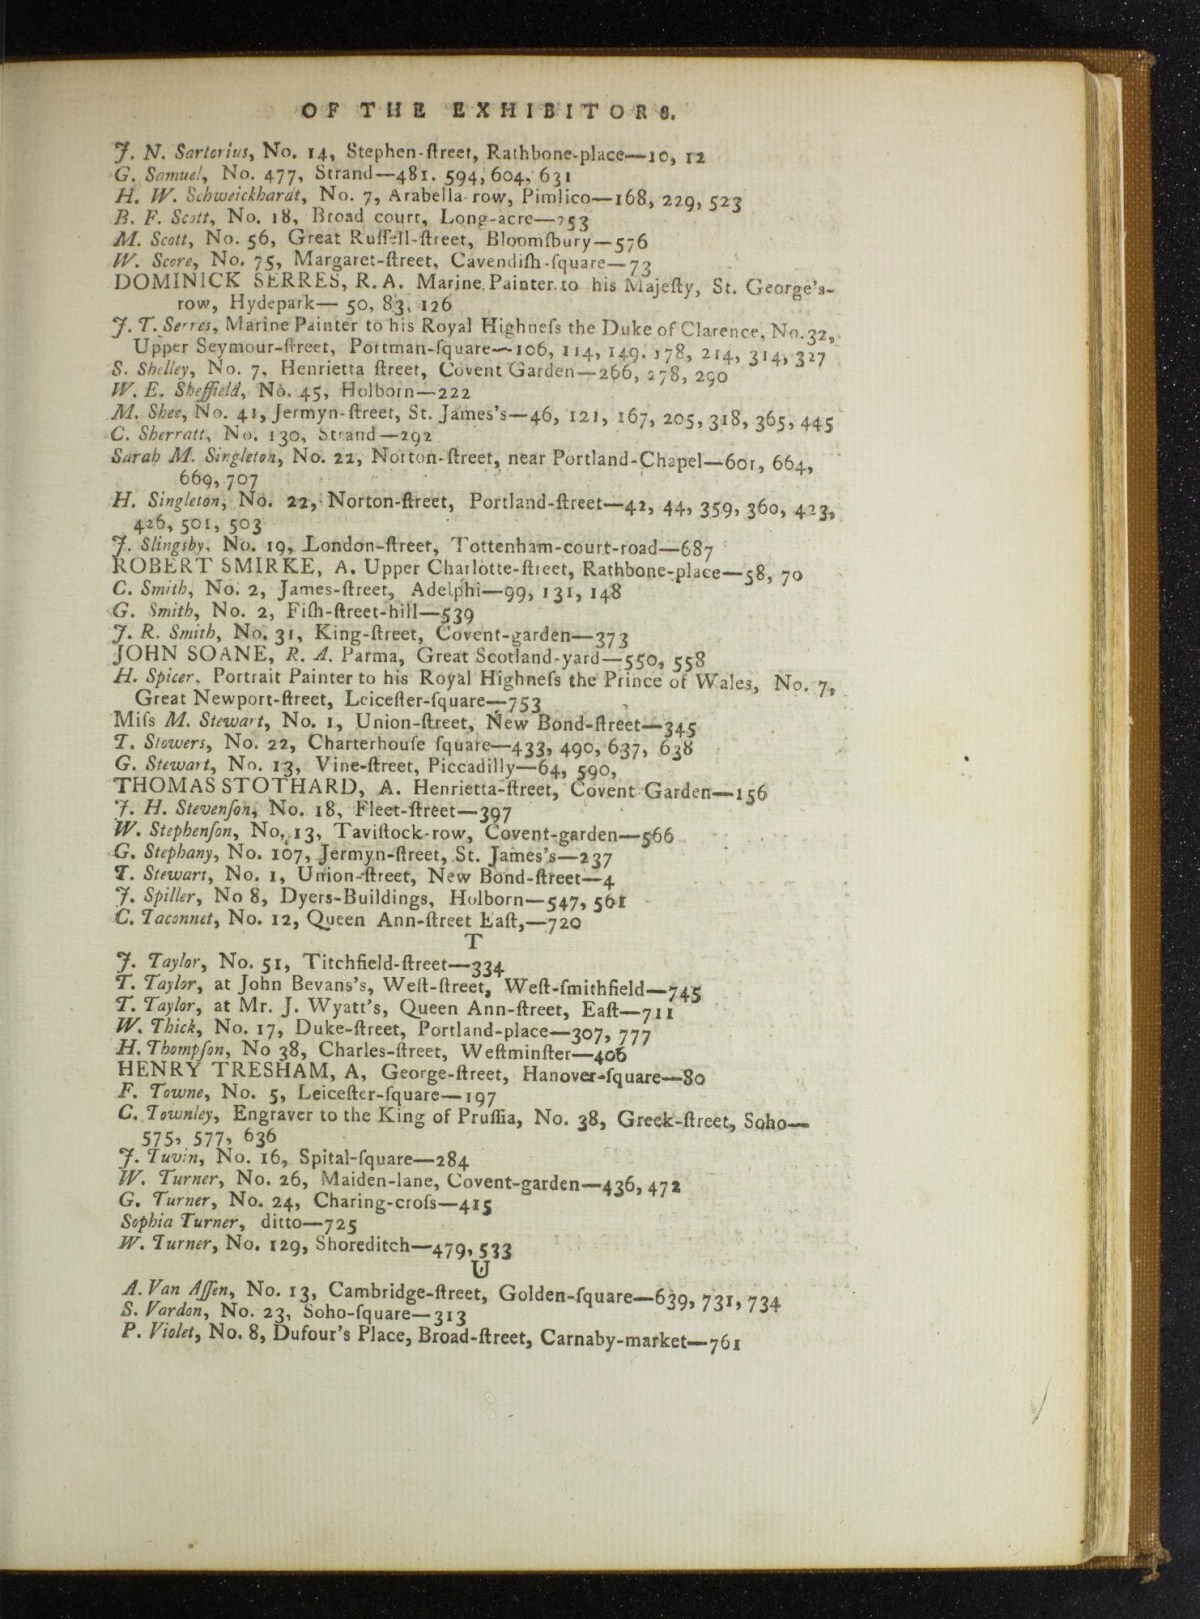 OF THE EXHIBITORS.
J. N. Sartorius, No. 14, Stephen-ſtreet, Rathbone-place—10, 12
G. Samuel, No. 477, Strand—481. 594, 604, 631
H. W. Schweickhardt, No. 7, Arabella-row, Pimlico—168, 229, 523
B. F. Scott, No. 18, Broad court, Long-acre—253
M. Scott, No. 56, Great Ruſſell-ſtreet, Bloomſbury—576
W. Score, No. 75, Margaret-ſtreet, Cavendiſh-ſquare—73
DOMINICK SERRES, R. A. Marine Painter to his Majeſty, St. George's-
row, Hydepark— 50, 83, 126
J. T. Serres, Marine Painter to his Royal Highneſs the Duke of Clarence, No. 32,
Upper Seymour-ſtreet, Portman-ſquare—106, 114, 149. 178, 214, 314, 327
S. Shelley, No. 7, Henrietta ſtreet, Covent Garden—266, 278, 290
W. E. Sheffield, No. 45, Holborn—222
M. Shee, No. 41, Jermyn-ſtreet, St. James's—46, 121, 167, 205, 318, 365, 445
C. Sherratt, No. 130, Strand—292
Sarah M. Singleton, No. 22, Norton-ſtreet, near Portland-Chapel—601, 664,
669, 707
H. Singleton, No. 22, Norton-ſtreet, Portland-ſtreet—42, 44, 359, 360, 423,
426, 501, 503
J. Slingsby, No. 19, London-ſtreet, Tottenham-court-road—687
ROBERT SMIRKE, A. Upper Charlotte-ſtreet, Rathbone-place—58, 70
C. Smith, No. 2, James-ſtreet, Adelphi—99, 131, 148
G. Smith, No. 2, Fiſh-ſtreet-hill—539
J. R. Smith, No. 31, King-ſtreet, Covent-garden—373
JOHN SOANE, R. A. Parma, Great Scotland-yard—550, 558
H. Spicer, Portrait Painter to his Royal Highneſs the Prince of Wales, No. 7,
Great Newport-ſtreet, Leiceſter-ſquare—753
Miſs M. Stewart, No. 1, Union-ſtreet, New Bond-ſtreet—345
T. Stowers, No. 22, Charterhouſe ſquare—433, 490, 637, 638
G. Stewart, No. 13, Vine-ſtreet, Piccadilly—64, 590,
THOMAS STOTHARD, A. Henrietta-ſtreet, Covent Garden—156
J. H. Stevenſon, No. 18, Fleet-ſtreet—397
W. Stephenſon, No. 13, Taviſtock-row, Covent-garden—566
G. Stephany, No. 107, Jermyn-ſtreet, St. James's—237
T. Stewart, No. 1, Union-ſtreet, New Bond-ſtreet—4
J. Spiller, No 8, Dyers-Buildings, Holborn—547, 561
C. Taconnet, No. 12, Queen Ann-ſtreet Eaſt,—720
T
J. Taylor, No. 51, Titchfield-ſtreet—334
T. Taylor, at John Bevans's, Weſt-ſtreet, Weſt-ſmithfield—745
T. Taylor, at Mr. J. Wyatt's, Queen Ann-ſtreet, Eaſt—711
W. Thick, No. 17, Duke-ſtreet, Portland-place—307, 777
H. Thompſon, No 38, Charles-ſtreet, Weſtminſter—406
HENRY TRESHAM, A, George-ſtreet, Hanover-ſquare—80
F. Towne, No. 5, Leiceſter-ſquare—197
C. Townley, Engraver to the King of Pruſſia, No. 38, Greek-ſtreet, Soho—
575, 577, 636
J. Tuvin, No. 16, Spital-ſquare—284
W. Turner, No. 26, Maiden-lane, Covent-garden—436, 472
G. Turner, No. 24, Charing-croſs—415
Sophia Turner, ditto—725
W. Turner, No. 129, Shoreditch—479, 533
U
A. Van Aſſen, No. 13, Cambridge-ſtreet, Golden-ſquare—639, 731, 734
S. Vardon, No. 23, Soho-ſquare—313
P. Violet, No. 8, Dufour's Place, Broad-ſtreet, Carnaby-market—761